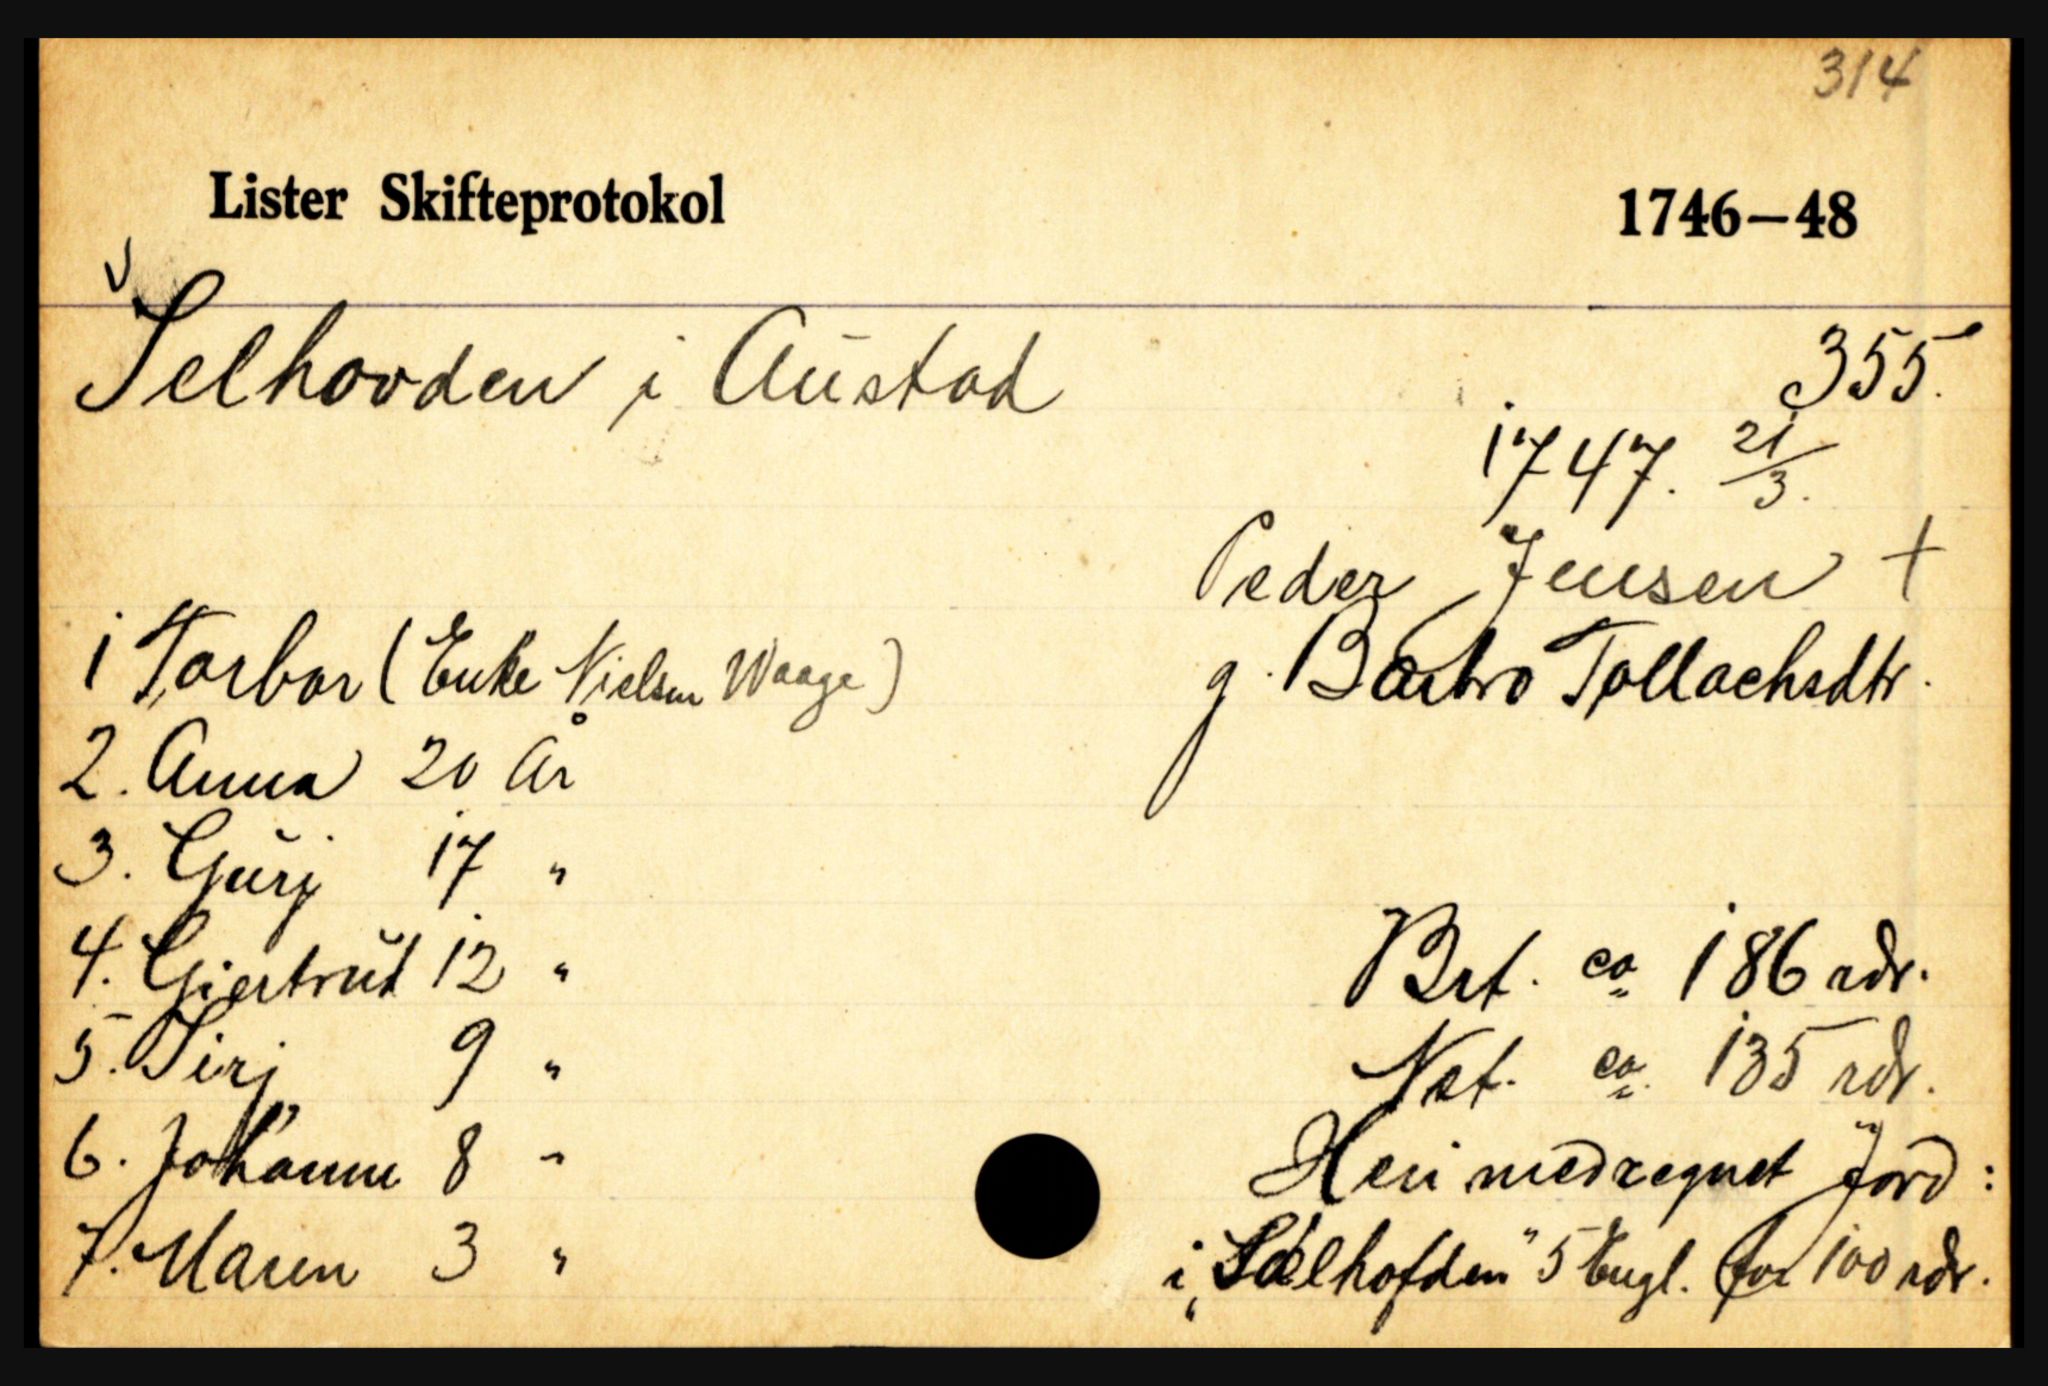 314
Lister Skifteprotokol 1746–48
Selhovden i Austad 355.
1747. 21/3.
Peder Jensen +
g. Barbro Tollachsdtr.
1 Torbor (Enke Nielsen Waage)
2. Anna 20 År
3. Gurj 17 "
4. Giertrud 12 "
5. Sirj 9 "
6. Johanne 8 "
7. Maren 3 "
Brt. ca 186 rdr.
Net. ca. 135 rdr.
Heri medregnet Jord:
i „Sælhofden" 5 Engl. for 100 rdr.